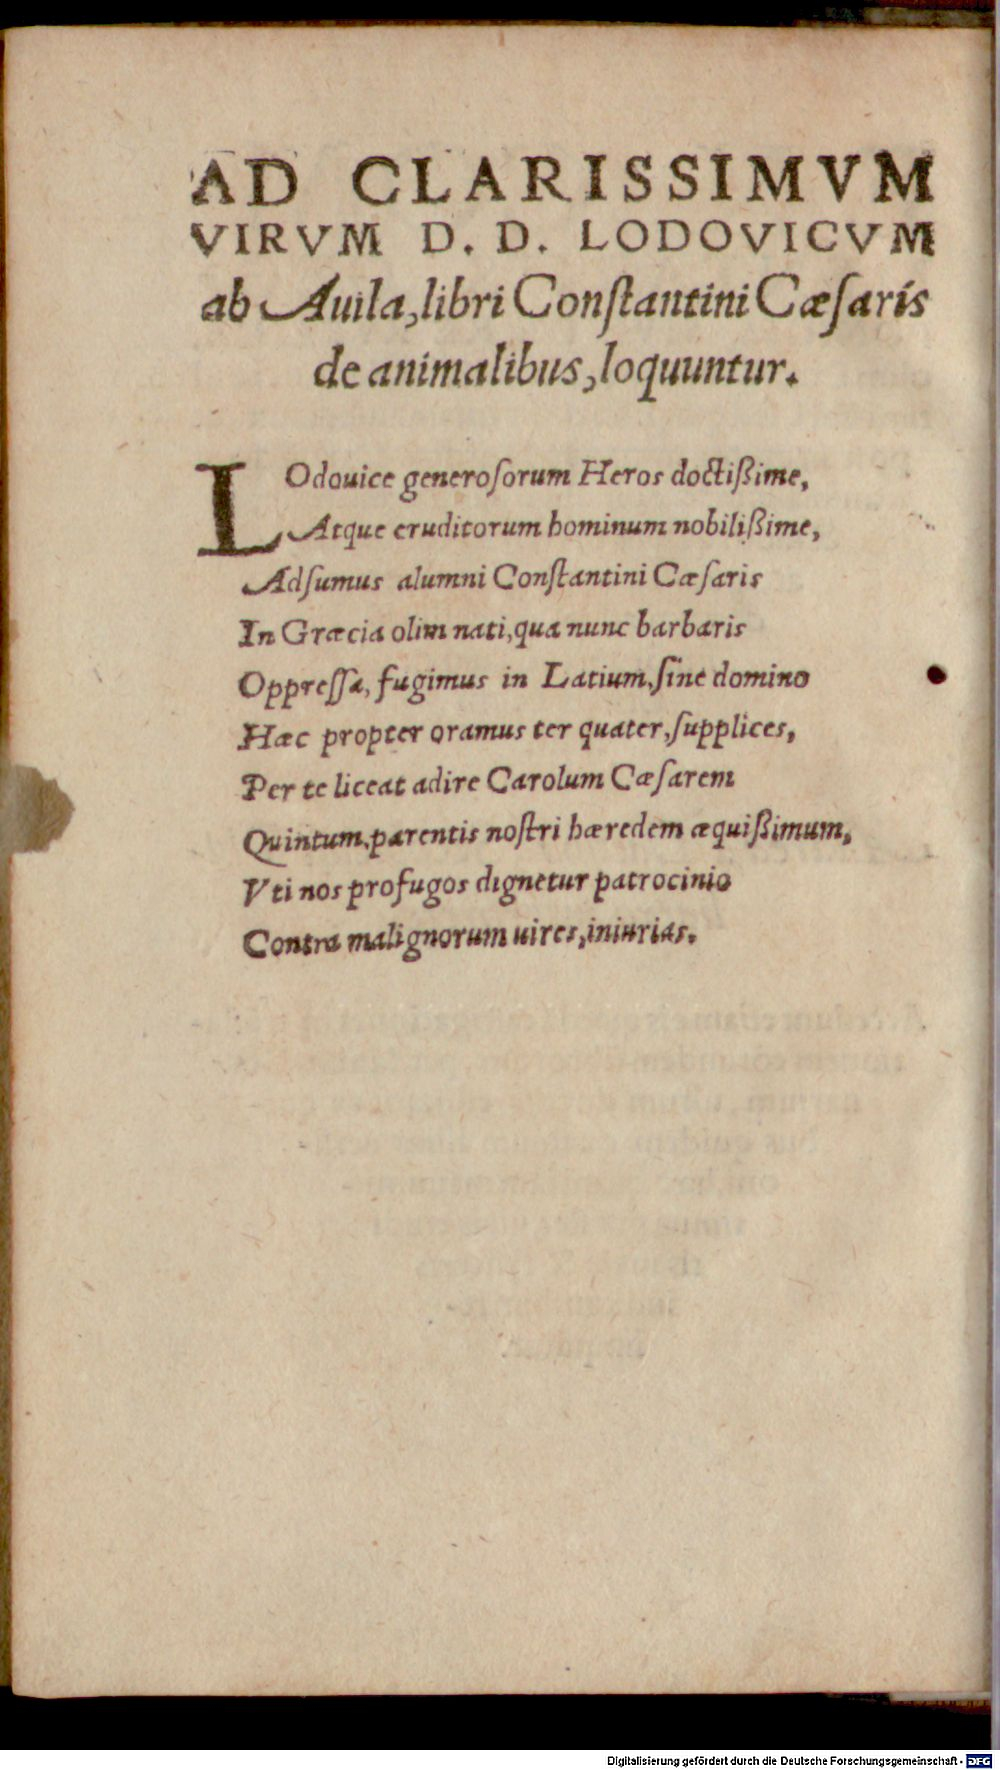 AD CLARISSIMVM
VIRVM D. D. LODOVICVM
ab Auila, libri Conſtantini Cæſaris
de animalibus, loquuntur.
LOdouice generoſorum Heros doctißime,
Atque eruditorum hominum nobilißime,
Adſumus alumni Conſtantini Cæſaris
In Græcia olim nati, qua nunc barbaris
Oppreſſa, fugimus in Latium, ſine domino
Hæc propter oramus ter quater, ſupplices,
Per te liceat adire Carolum Cæſarem
Quintum, parentis noſtri hæredem æquißimum,
Vti nos profugos dignetur patrocinio
Contra malignorum uires, iniurias.
Digitalisierung gefördert durch die Deutsche Forschungsgemeinschaft - DFG